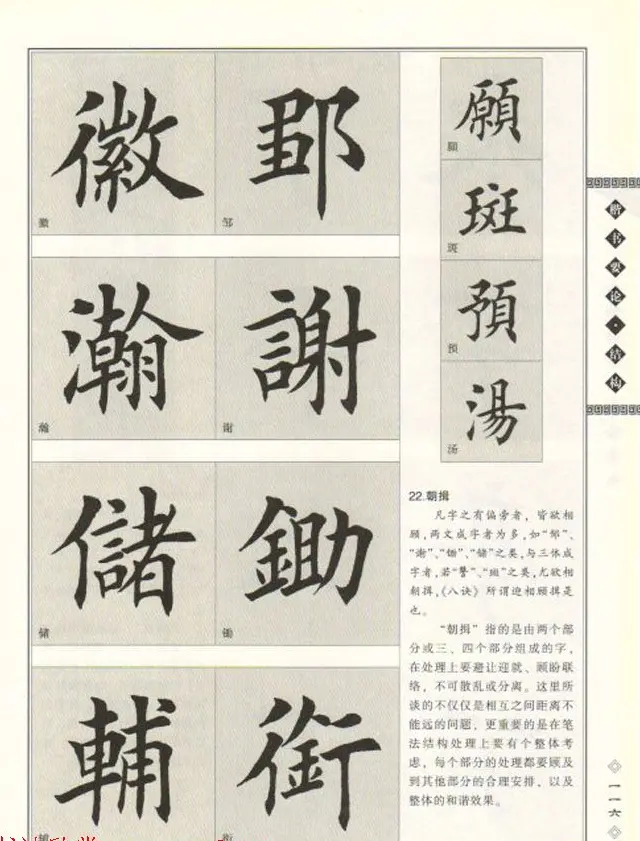 徽
徽
邹
瀚
瀚
謝
谢
儲
储
鋤
锄
輔
辅
銜
衔
願
願
斑
斑
預
预
湯
汤
22.朝揖
凡字之有偏旁者，皆欲相
顾，两文成字者为多，如“邹”、
“谢”、“锄”、“储”之类，与三体成
字者，若“讐”、“斑”之类，尤欲相
朝揖，《八诀》所谓迎相顾揖是
也。
“朝揖”指的是由两个部
分或三、四个部分组成的字，
在处理上要避让迎就、顾盼联
络，不可散乱或分离。这里所
谈的不仅仅是相互之间距离不
能远的问题，更重要的是在笔
法结构处理上要有个整体考
虑，每个部分的处理都要顾及
到其他部分的合理安排，以及
整体的和谐效果。
楷书要论·结构
一一六